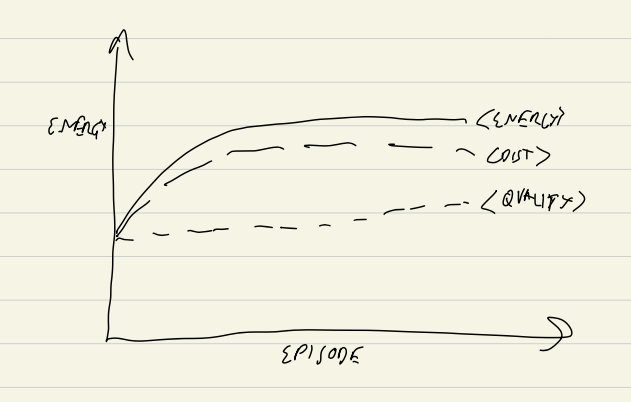 <ENERGY>
ENERGY
<COST>
<QUALITY>
EPISODE